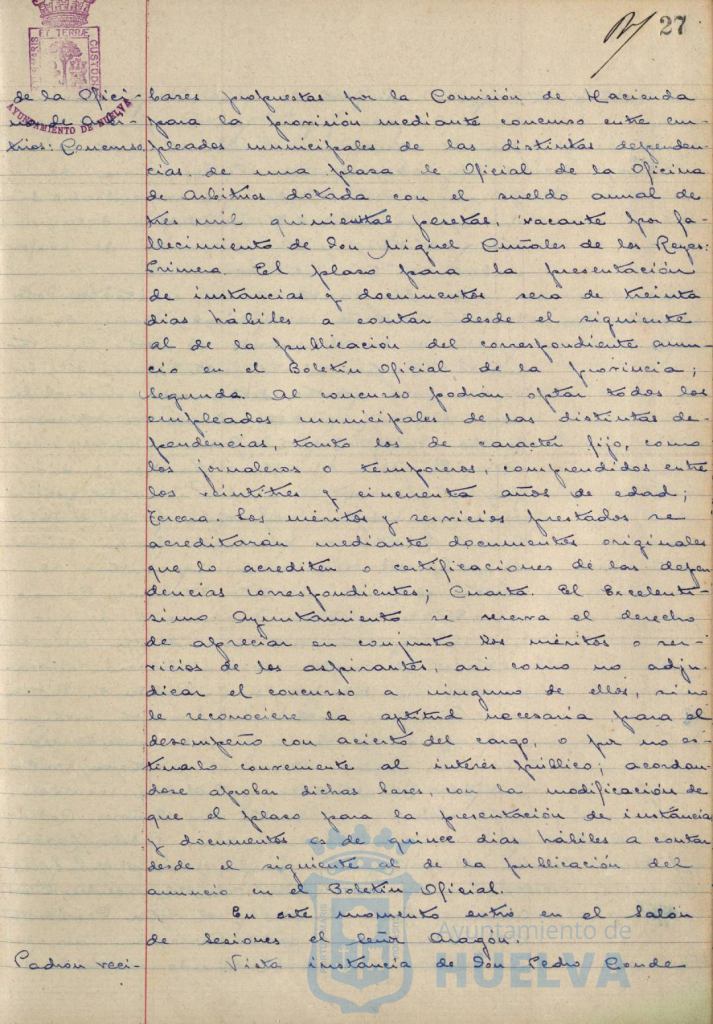 27
de la Ofici-
na de Arbi-
trios: Concurso
AYUNTAMIENTO DE HUELVA
bases propuestas por la Comisión de Hacienda
para la provisión mediante concurso entre em-
pleados municipales de las distintas dependen-
cias, de una plaza de Oficial de la Oficina
de Arbitrios dotada con el sueldo anual de
tres mil quinientas pesetas, vacante por fa-
llecimiento de Don Miguel Cuñales de los Reyes:
Primera. El plazo para la presentación
de instancias y documentos sera de treinta
dias hábiles a contar desde el siguiente
al de la publicación del correspondiente anun-
cio en el Boletin Oficial de la provincia;
Segunda. Al concurso podrán optar todos los
empleados municipales de las distintas de-
pendencias, tanto los de caracter fijo, como
los jornaleros o temporeros, comprendidos entre
los veintitres y cincuenta años de edad;
Tercera. Los méritos y servicios prestados se
acreditarán mediante documentos originales
que lo acrediten o certificaciones de las depen
dencias correspondientes; Cuarta. El Excelentí-
simo Ayuntamiento se reserva el derecho
de apreciar en conjunto los méritos o ser-
vicios de los aspirantes, asi como no adju-
dicar el concurso a ninguno de ellos, si no
le reconociese la aptitud necesaria para el
desempeño con acierto del cargo, o por no es-
timarlo conveniente al interés público; acordan-
dose aprobar dichas bases, con la modificación de
que el plazo para la presentación de instancias
y documentos es de quince dias hábiles a contar
desde el siguiente al de la publicación del
anuncio en el Boletin Oficial.
En este momento entró en el Salón
de Sesiones el Señor Aragón.
Padron veci-
Vista instancia de Don Pedro Conde
Ayuntamiento de
HUELVA